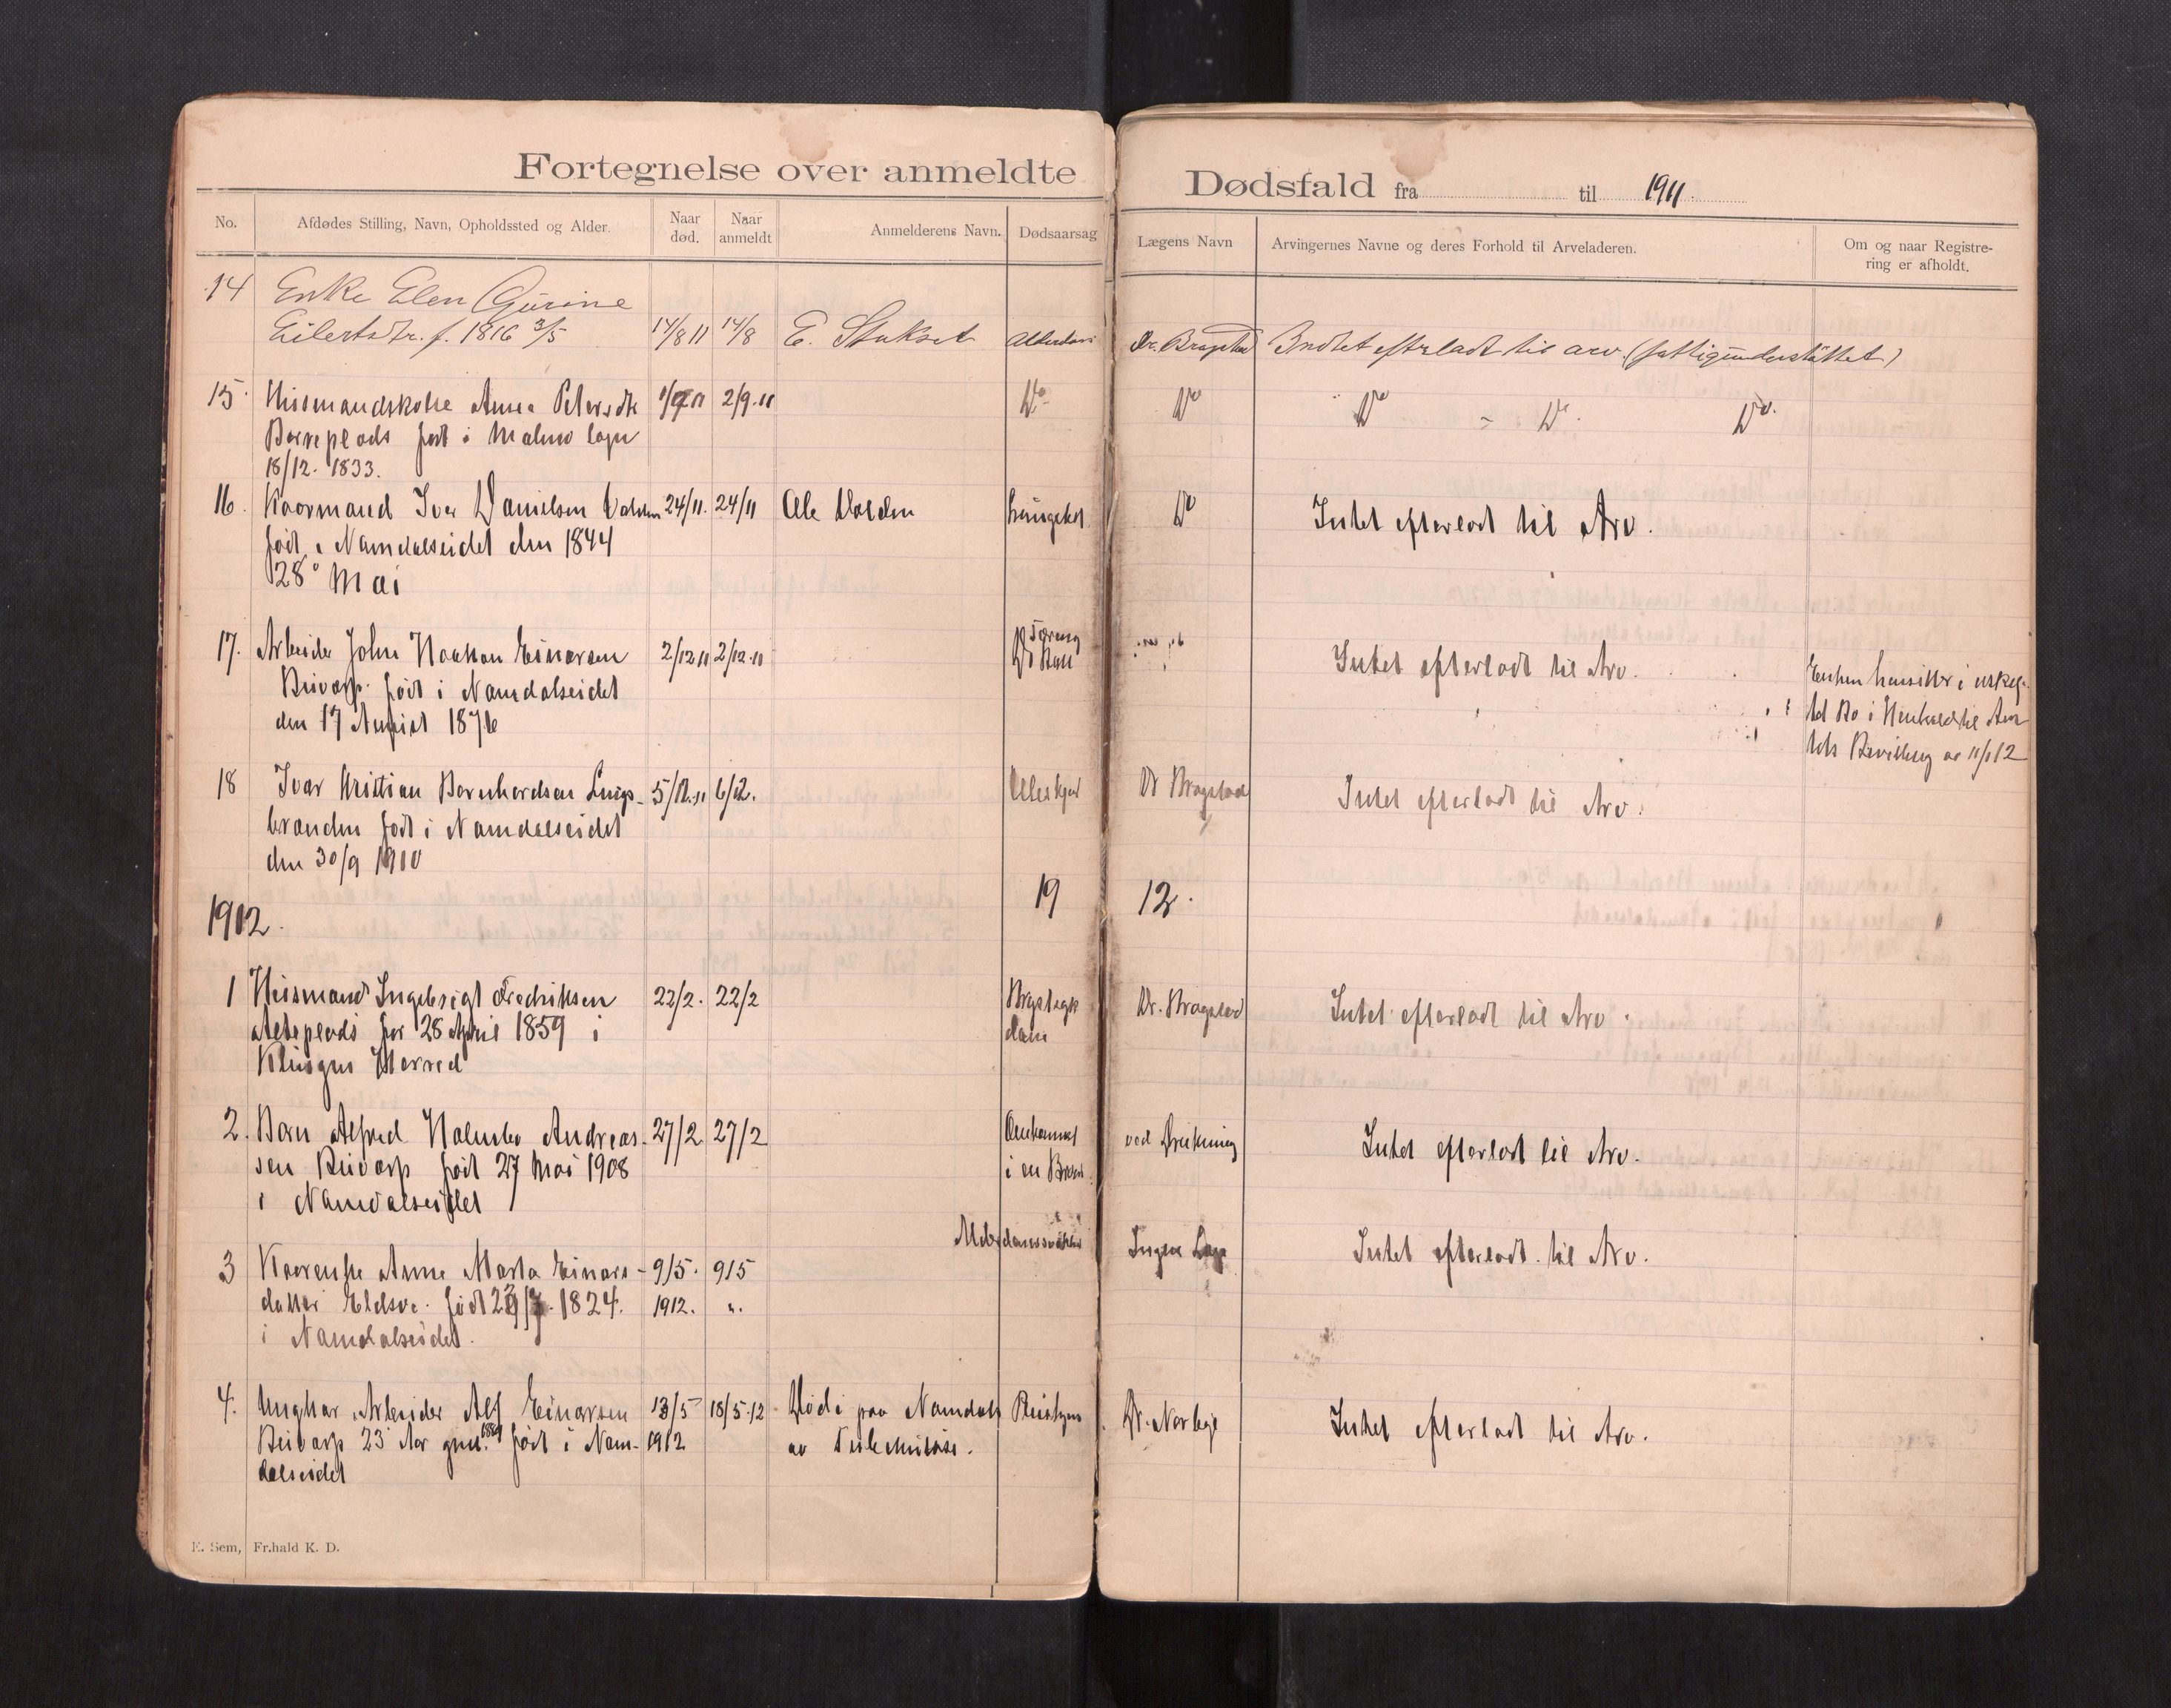 Fortegnelse over anmeldte
Dødsfald fra til 1911.
No.
Afdødes Stilling, Navn, Opholdssted og Alder.
Naar død.
Naar anmeldt
Anmelderens Navn.
Dødsaarsag
Lægens Navn
Arvingernes Navne og deres Forhold til Arveladeren.
Om og naar Registre-
ring er afholdt.
14 Enke Elen Gurine
Eilertsdtr. f. 1816 3/5 14/8 11 14/8 E. Stokset Alderdom Dr. Bragstad Intet efterladt til arv (fattigunderstøttet)
15. Husmandskone Anne Petersdtr 1/9 11 2/9.11 Do Do Do = Do. Do.
født i Malmo Sogn
18/12. 1833.
16. Kaarmand Iver Danielsen Dalen 24/11. 24/11 Ole Dalen Do Intet efterladt til Arv.
født i Namdalseidet den 1844
28de Mai
17. Arbeider John Haakon Einarsen 2/12 11 2/12.11 Intet efterladt til Arv.
født i Namdalseidet
den 17 August 1876
Enken hensitter i uskif-
tet Bo i Henhold til Am
tets Bevilling av 11/1 12
18 Ivar Kristian Bernhardsen 5/12.11 6/12. Dr Bragstad Intet efterladt til Arv.
født i Namdalseidet
den 30/9 1910
19 12.
1912.
1 Husmand Ingebrigt Fredriksen 22/2. 22/2 Dr. Bragstad Intet efterladt til Arv.
før 28 April 1859 i
Klingens Herred
2. Barn Alfred Holmbo Andreas- 27/2 27/2 Omkommet ved Drukning Intet efterladt til Arv.
sen født 27 Mai 1908 i en Brønd
i Namdalseidet
Alderdomssvækkelse
3 Kaarenke Anne Marta Einars- 9/5. 9/5 Ingen Læge Intet efterladt til Arv.
datter født 1824. 1912. ".
i Namdalseidet.
4. Ungkar, Arbeider Alf Einarsen 13/5 18/5.12 Død i paa Namdals Dr. Intet efterladt til Arv.
23 Aar gml. 1889 født i Nam- 1912 av Tuberkulose.
dalseidet
E. Sem, Fr.hald K. D.